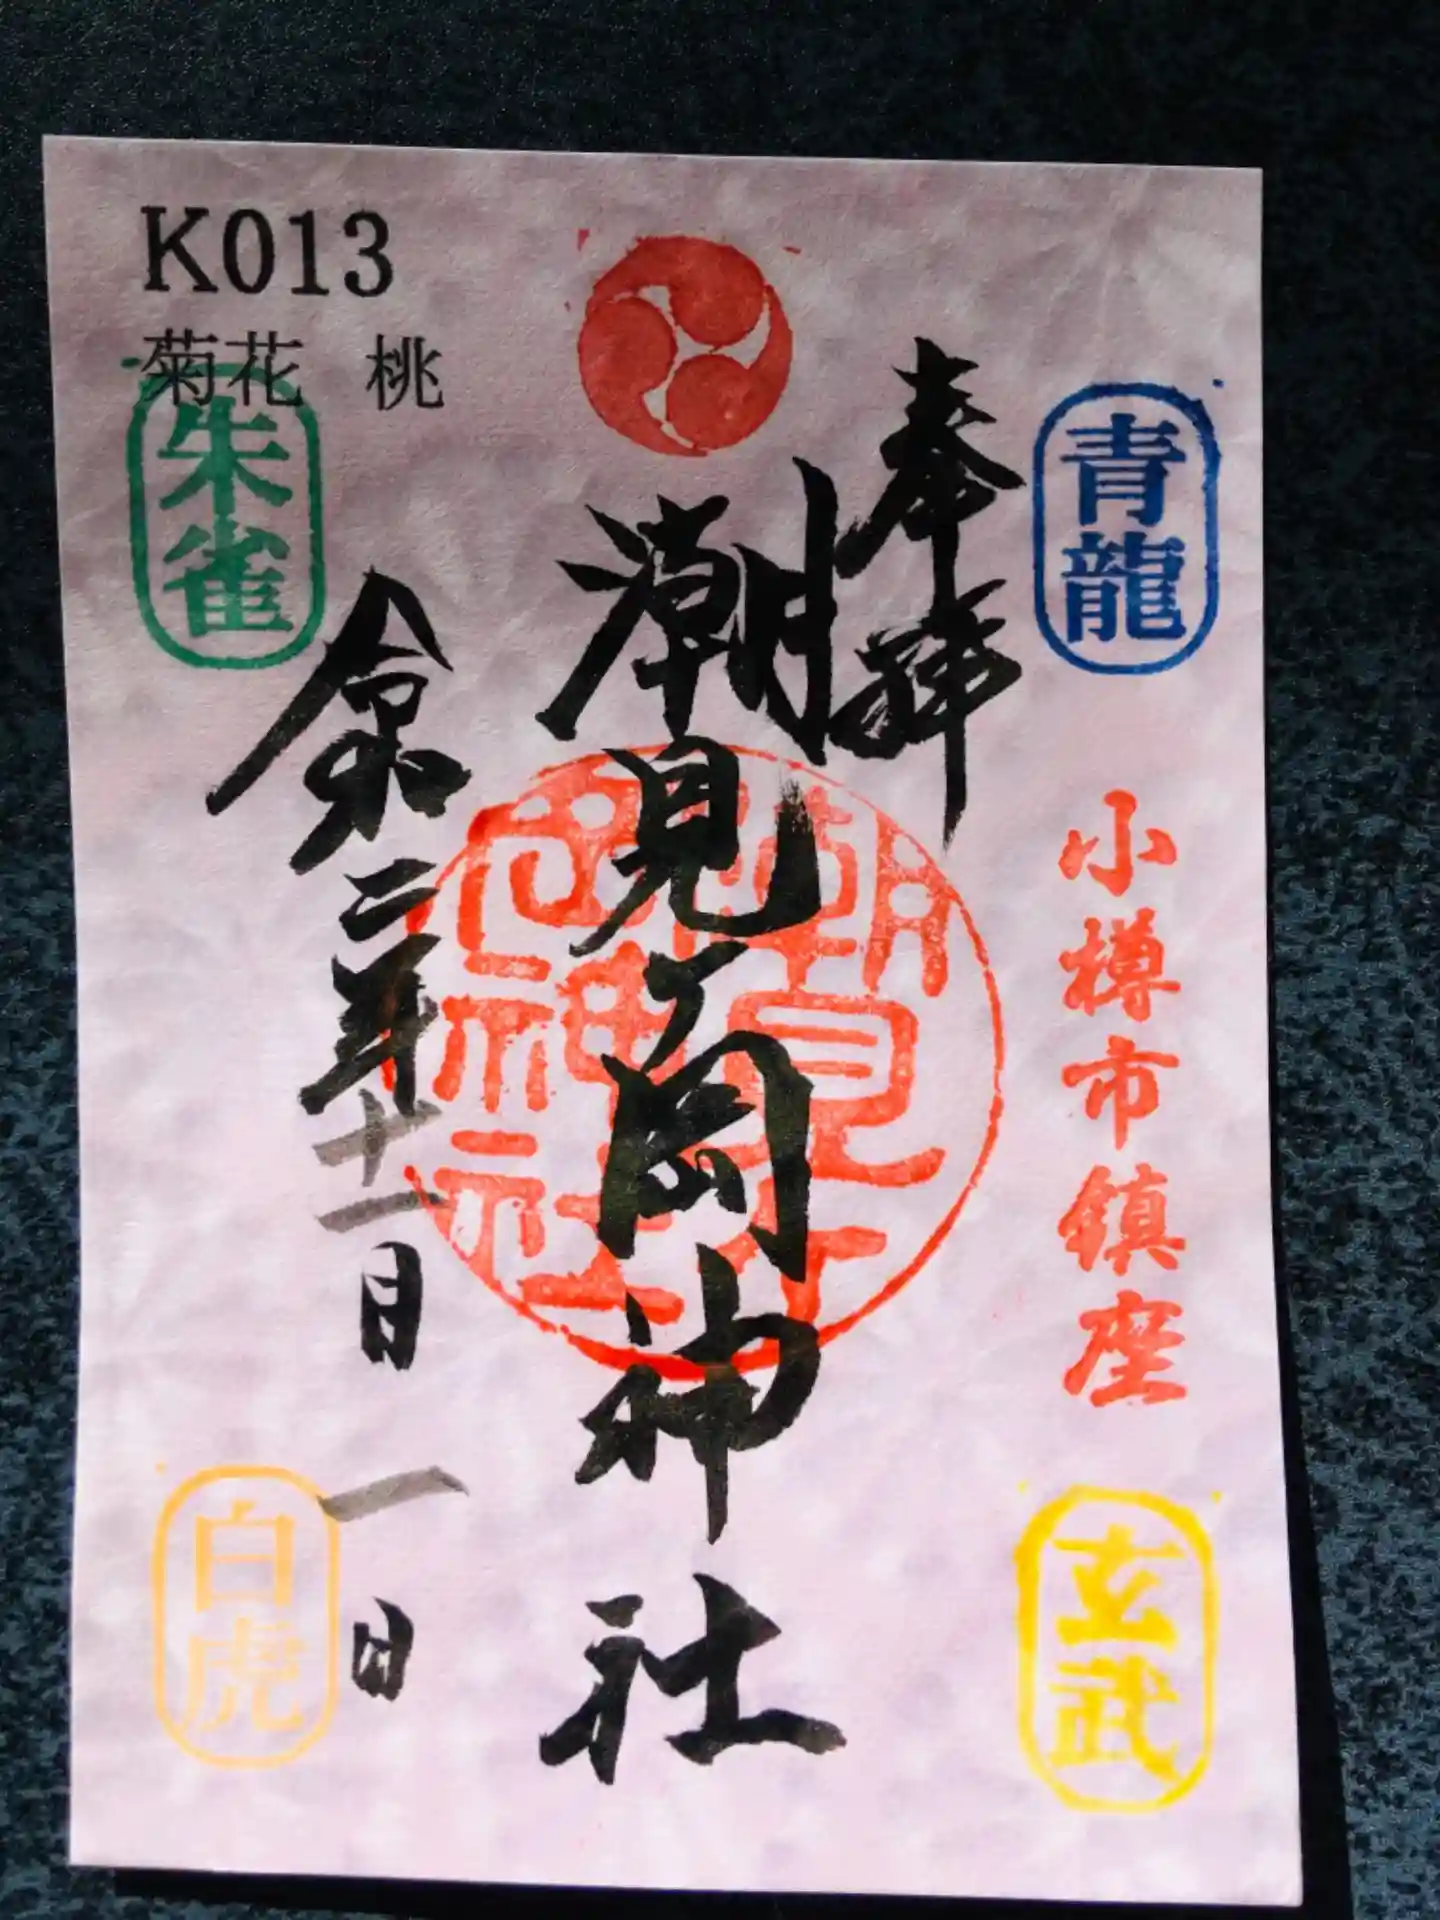 K013
菊花 桃
青龍
奉拝
小樽市鎮座
潮見ヶ岡神社
朱雀
令和二年十一月一日
玄武
白虎